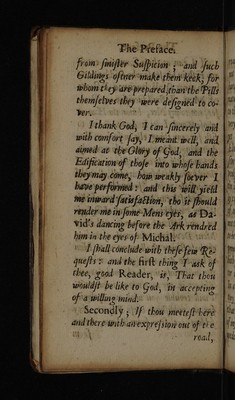 The Preface.
from ſiniſter Suſpicion ; and ſuch
Gildings oftner make them keck, for
whom they are prepared, than the Pills
themſelves they were deſigned to co-
ver.
I thank God, I can ſincerely and
with comfort ſay, I meant well, and
aimed at the Glory of God, and the
Edification of thoſe into whoſe hands
they may come, how weakly ſoever I
have performed : and this will yield
me inward ſatisfaction, tho it ſhould
render me in ſome Mens eyes, as Da-
vid's dancing before the Ark rendred
him in the eyes of Michal.
I ſhall conclude with theſe few Re-
queſts : and the firſt thing I ask of
thee, good Reader, is, That thou
wouldſt be like to God, in accepting
of a willing mind.
Secondly ; If thou meeteſt here
and there with an expreſſion out of the
road,